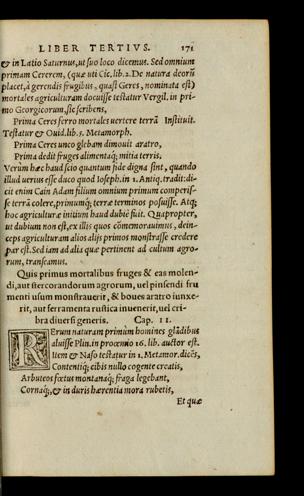 LIBER TERTIVS. 171
& in Latio Saturnus, ut suo loco dicemus. Sed omnium
primam Cererem, (quæ uti Cic. lib. 2. De natura deorũ
placet, à gerendis frugibus, quasi Geres, nominata est)
mortales agriculturam docuisse testatur Vergil. in pri-
mo Georgicorum, sic scribens,
Prima Ceres ferro mortales uertere terrã Instituit.
Testatur & Ouid. lib. 5. Metamorph.
Prima Ceres unco glebam dimouit aratro,
Prima dedit fruges alimentaq; mitia terris.
Verùm hæc haud scio quantum fide digna sint, quando
illud uerius esse duco quod Ioseph. in 1. Antiq. tradit: di-
cit enim Cain Adam filium omnium primum comperis-
se terrã colere, primumq; terræ terminos posuisse. Atq;
hoc agriculturæ initium haud dubiè fuit. Quapropter,
ut dubium non est, ex illis quos cõmemorauimus, dein-
ceps agriculturam alios alijs primos monstrasse credere
par est. Sed iam ad alia quæ pertinent ad cultum agro-
rum, transeamus.
Quis primus mortalibus fruges & eas molen-
di, aut stercorandorum agrorum, uel pinsendi fru
menti usum monstrauerit, & boues aratro iunxe-
rit, aut ferramenta rustica inuenerit, uel cri-
bra diuersi generis. Cap. II.
RErum naturam primùm homines glãdibus
aluisse Plin. in procemio 16. lib. auctor est.
Item & Naso testatur in 1. Metamor. dicẽs,
Contentiq; cibis nullo cogente creatis,
Arbuteos fœtus montanaq; fraga legebant,
Cornaq;, & in duris hærentia mora rubetis,
Et quæ